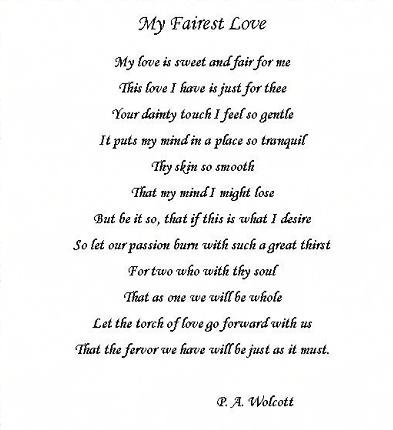 My Fairest Love
My love is sweet and fair for me
This love I have is just for thee
Your dainty touch I feel so gentle
It puts my mind in a place so tranquil
Thy skin so smooth
That my mind I might lose
But be it so, that if this is what I desire
So let our passion burn with such a great thirst
For two who with thy soul
That as one we will be whole
Let the torch of love go forward with us
That the fervor we have will be just as it must.
P. A. Wolcott